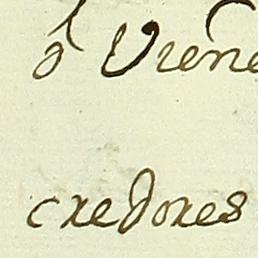 q̃ Viene
credores